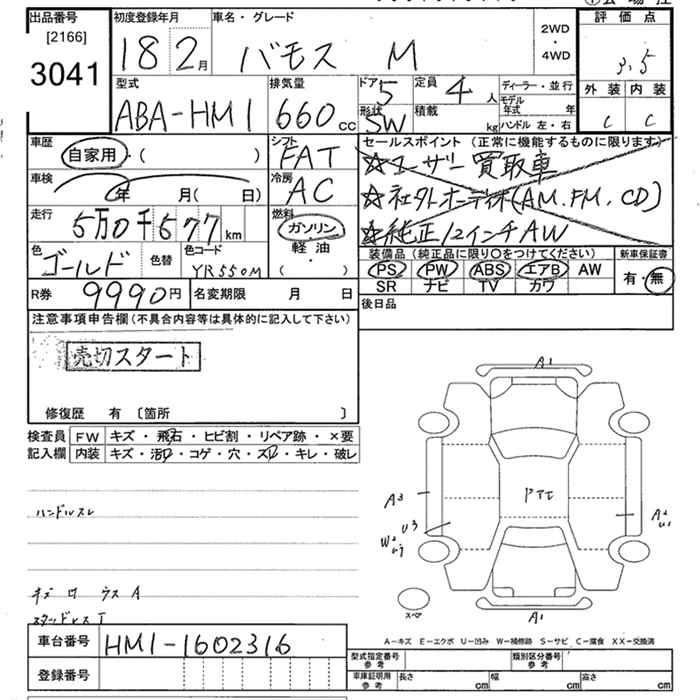 出品番号
[2166]
3041
初度登録年月
18 2月
車名・グレード
バモス M
2WD
・
4WD
評価点
3.5
外装 内装
C C
型式
ABA-HM1
排気量
660cc
ドア 5
形状 SW
定員 4人
積載 kg
ディーラー・並行
モデル年式 年
ハンドル 左・右
車歴
自家用・( )
シフト
FAT
車検
年 月( 日)
冷房
AC
走行
5万0千677km
燃料
ガソリン
軽油・
( )
色
ゴールド
色替
色コード
YR550M
R券 9990円
名変期限 月 日
セールスポイント(正常に機能するものに限ります)
☆ユーザー買取車
☆社外オーディオ(AM.FM.CD)
☆純正12インチAW
装備品(純正品に限り○をつけてください)
PS PW ABS エアB AW
SR ナビ TV カワ
新車保証書
有・無
後日品
注意事項申告欄(不具合内容等は具体的に記入して下さい)
売切スタート
修復歴 有 〔箇所 〕
検査員記入欄
FW キズ・飛石・ヒビ割・リペア跡・×要
内装 キズ・汚れ・コゲ・穴・スレ・キレ・破レ
ハンドルスレ
キズ
スタッドレス
A1
A3
U3
W2
A2
U1
スペア
A1
A-キズ E-エクボ U-凹み W-補修跡 S-サビ C-腐食 XX-交換済
車台番号 HM1-1602316
登録番号
型式指定番号 参考
類別区分番号 参考
車庫証明用 参考 長さ cm 幅 cm 高さ cm